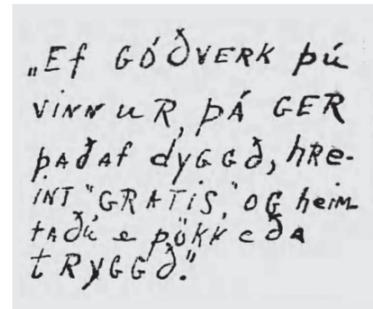 „Ef GÓÐVERK þú
viNNuR, ÞÁ GER
ÞAÐAf dyGGð, hRe-
iNT "GRATiS," OG heim
tAðu e þökk eðA
tRyGGð."